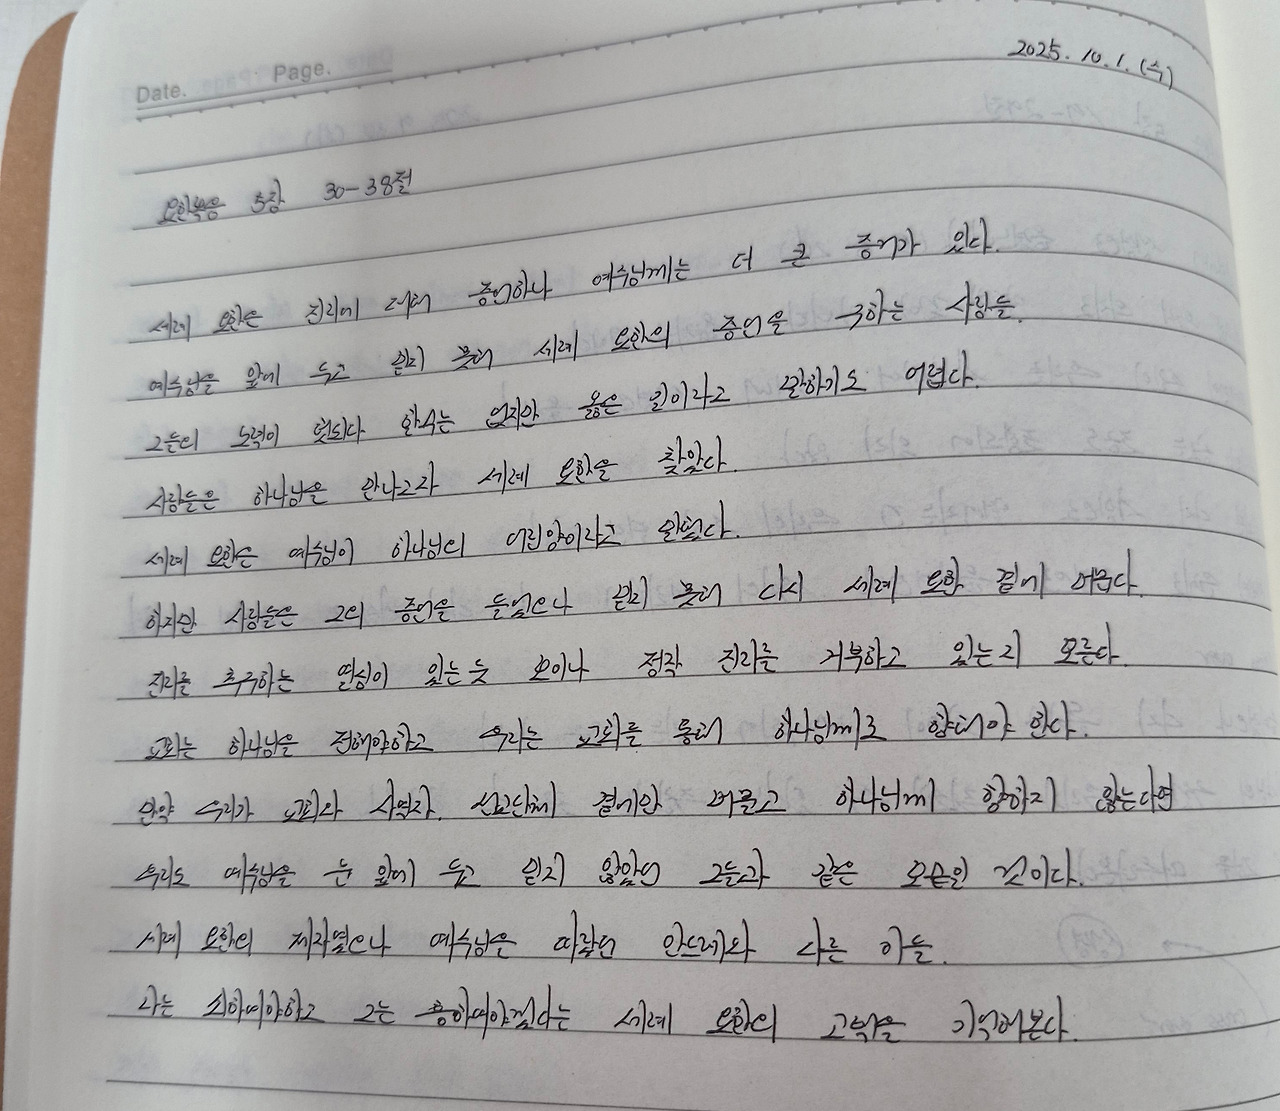 Date. Page.
2025. 10. 1. (수)
요한복음 5장 30-38절
세례 요한은 진리에 대해 증언하나 예수님께는 더 큰 증거가 있다.
예수님을 앞에 두고 믿지 못해 세례 요한의 증언을 구하는 사람들.
그들의 노력이 헛되다 할수는 없지만 옳은 일이라고 말하기도 어렵다.
사람들은 하나님을 만나고자 세례 요한을 찾았다.
세례 요한은 예수님이 하나님의 어린양이라고 말했다.
하지만 사람들은 그의 증언을 들었으나 믿지 못해 다시 세례 요한 곁에 머문다.
진리를 추구하는 열심이 있는듯 보이나 정작 진리를 거부하고 있는지 모른다.
교회는 하나님을 전해야하고 우리는 교회를 통해 하나님께로 향해야 한다.
만약 우리가 교회와 사역자. 선교단체 곁에만 머물고 하나님께 향하지 않는다면
우리도 예수님을 눈 앞에 두고 믿지 않았던 그들과 같은 모습일 것이다.
세례 요한의 제자였으나 예수님을 따랐던 안드레와 다른 이들.
나는 쇠하여야하고 그는 흥하여야겠다는 세례 요한의 고백을 기억해본다.